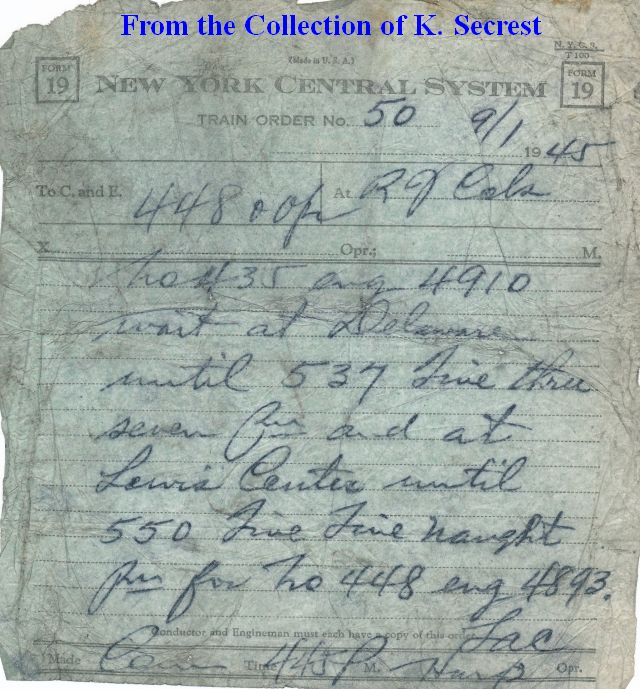 From the Collection of K. Secrest
(Made in U. S. A.)
N. Y. C. S.
T 100
FORM 19
NEW YORK CENTRAL SYSTEM
FORM 19
TRAIN ORDER No. 50 9/1 1945
To C. and E. 448 At
X Opr.; M.
No 435 eng 4910
wait at Delaware
until 537 five three
seven pm and at
Lewis Center until
550 five five naught
pm for No 448 eng 4893.
Conductor and Engineman must each have a copy of this order
Made Com Time 445 P M. Opr.